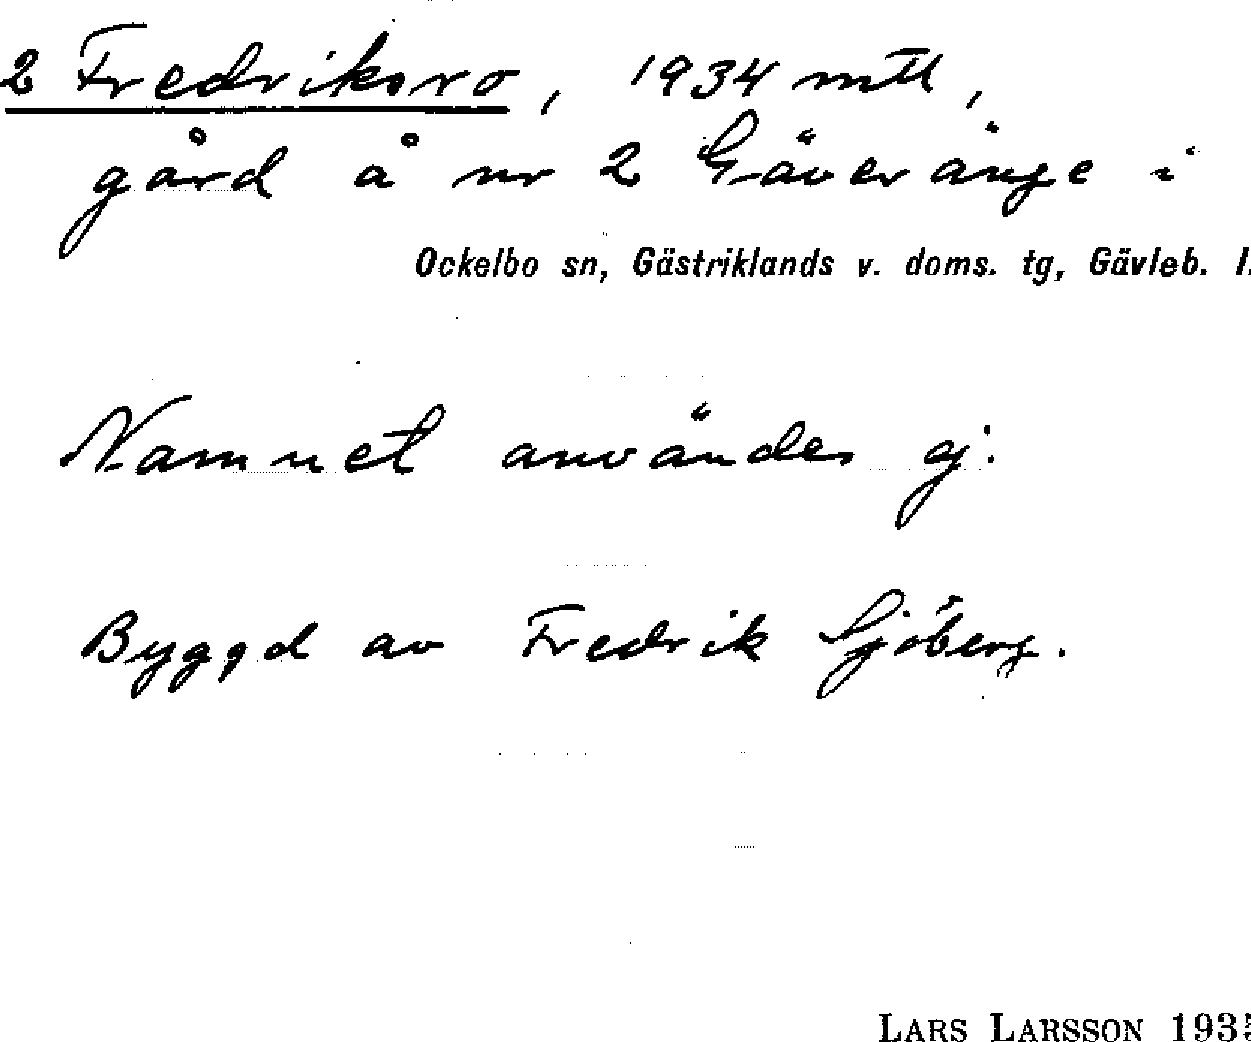 2 Fredriksro, 1934 mtl,
gård å nr 2 Gäveränge i
Ockelbo sn, Gästriklands v. doms. tg, Gävleb. l.
Namnet användes ej.
Byggd av Fredrik Sjöberg.
LARS LARSSON 193